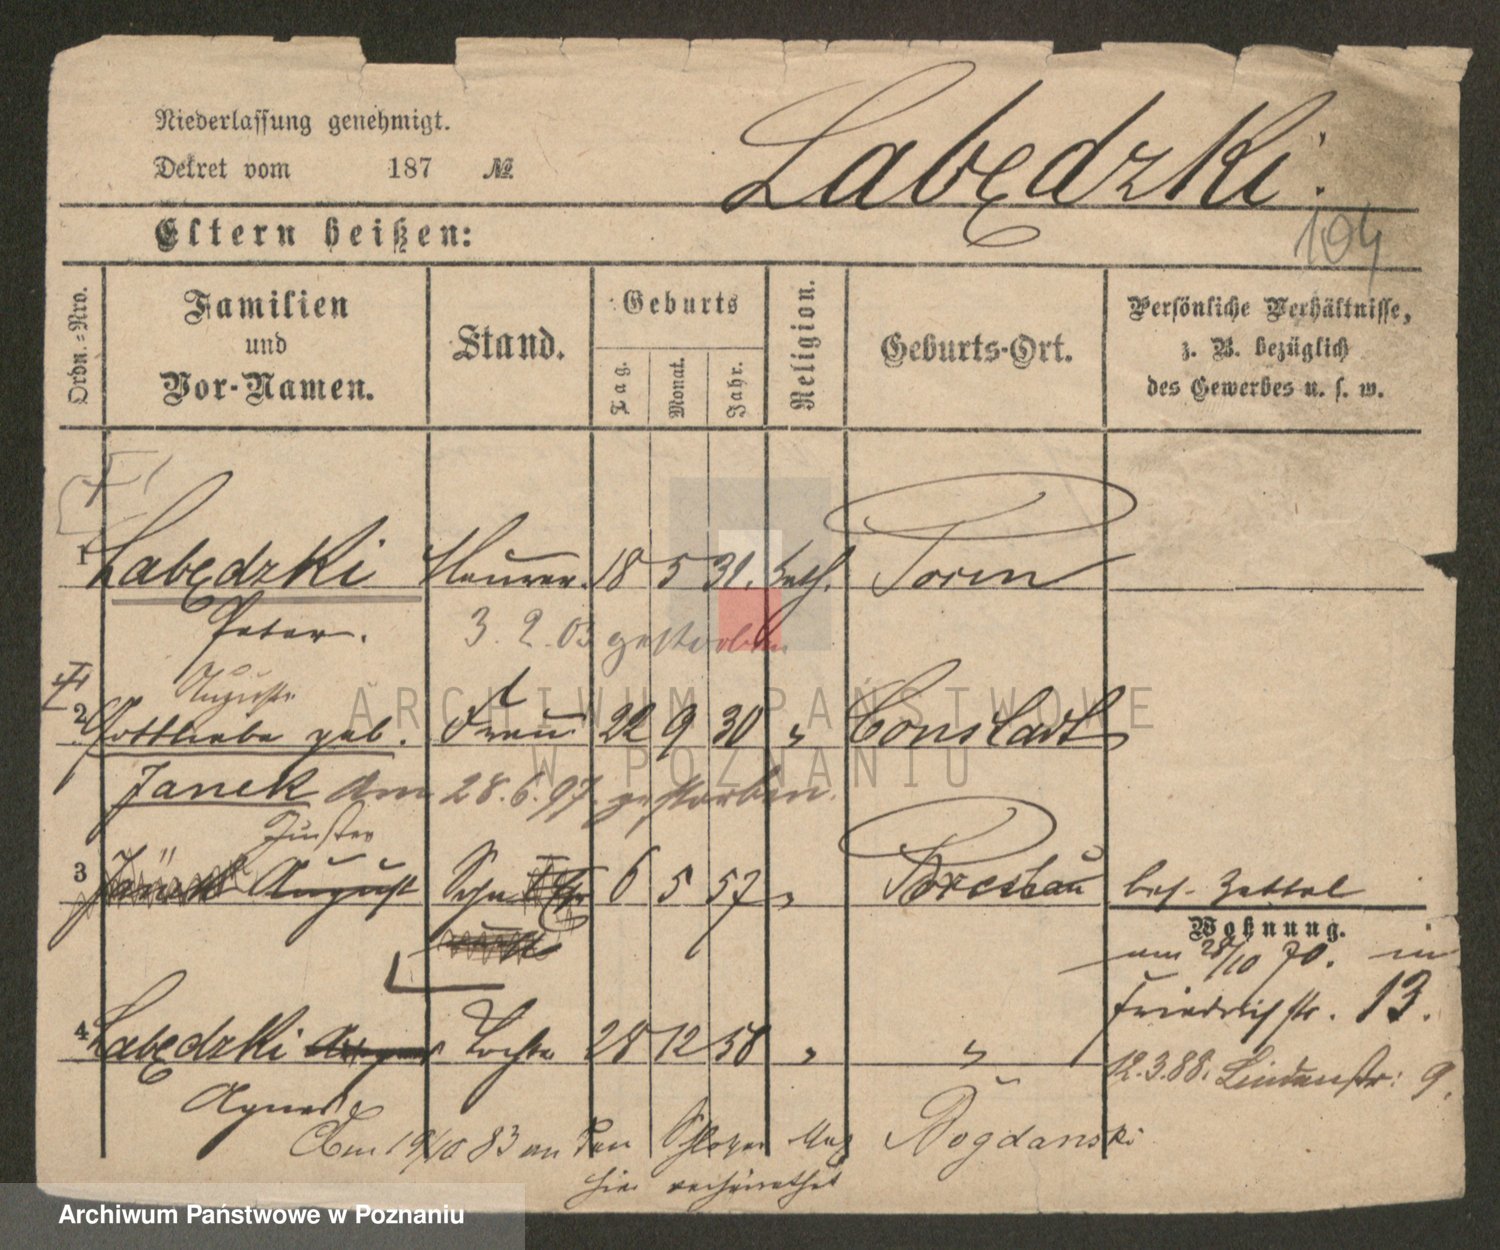 Niederlassung genehmigt.
Dekret vom 187 №
Labędzki.
104
Eltern heißen:
Ordn.-Nro.
Familien und Vor-Namen.
Stand.
Geburts
Tag.
Monat.
Jahr.
Religion.
Geburts-Ort.
Persönliche Verhältnisse,
z. B. bezüglich
des Gewerbes u. s. w.
1 Labędzki Maurer. 18 5 31. kath.
Peter.
3. 2. 03 gestorben
Auguste
2 Gottliebe geb. Frau 22 9 30 " Constadt
Janek am 28.6.97. gestorben.
3 August Sohn 6 5 57 " Breslau bes. Zettel
Wohnung.
am 28/10 70. in
Friedrichstr. 13.
4 Labędzki Tochter 28 12 58 " "
12.3.88. Lindenstr: 9.
Agnes
Am 19/10 83 an den Bogdanski
hier verheirathet
ARCHIWUM PAŃSTWOWE
W POZNANIU
Archiwum Państwowe w Poznaniu